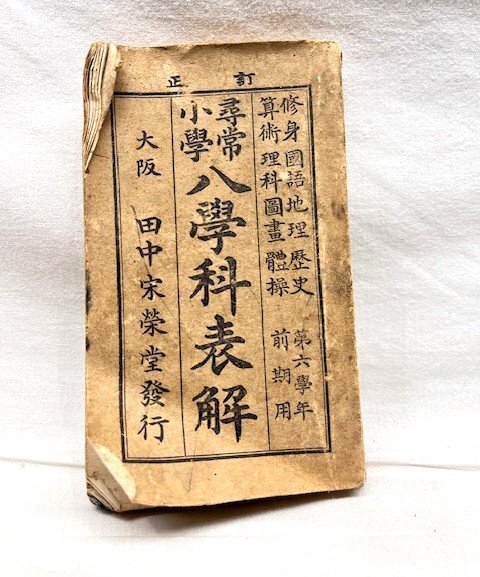 訂正
修身國語地理歷史
算術理科圖畫體操
第六學年
前期用
尋常
小學
八學科表解
大阪 田中宋榮堂發行